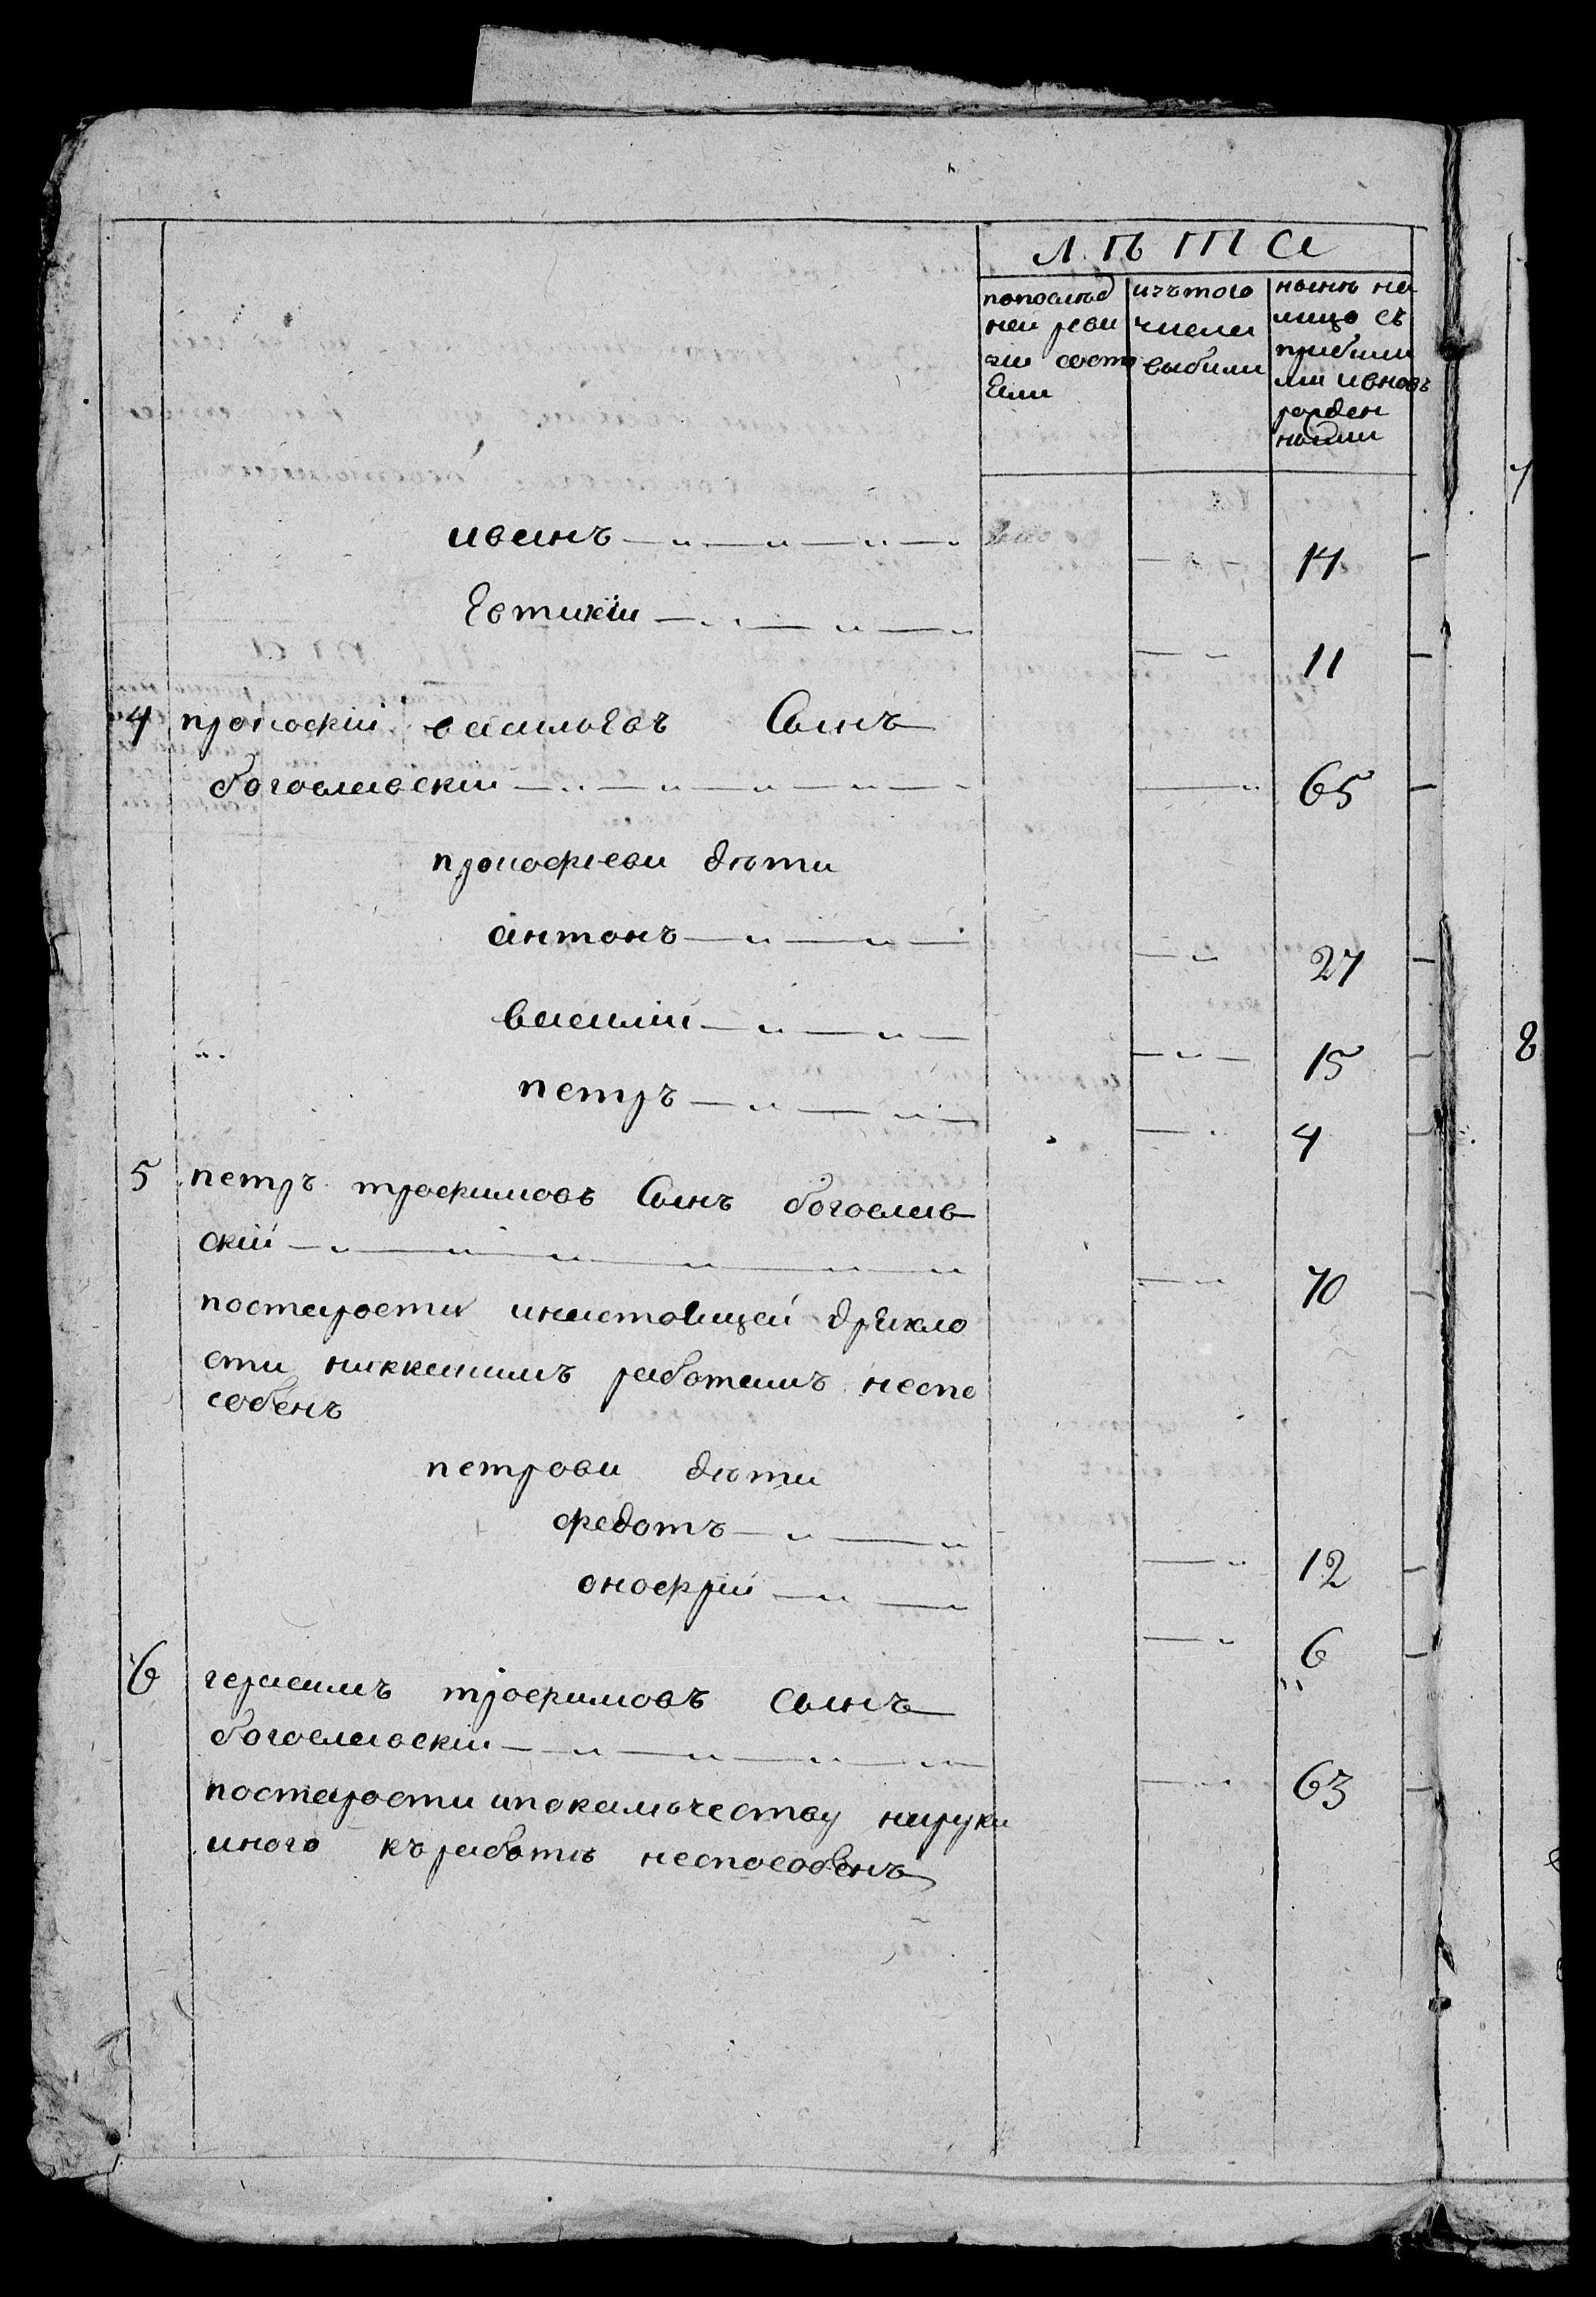 ЛѢТА
попослѣд
ней реви
зіи состо
ѣли
изътого
числа
выбыли
нынѣ на
лицо съ
прибылы
ми ивновъ
рожден
ными
иванъ 14
Евтихіи 11
4 прокофіи васильевъ Сынъ
богославскіи 65
прокофьевы дѣти
антонъ 27
василіи 15
петръ 4
5 петръ трофимовъ Сынъ богослав
скіи 70
постарости инастоящей дряхло
сти никкакимъ работамъ неспо
собенъ
петровы дѣти
федотъ 12
онофріи 6
6 герасимъ трофимовъ сынъ
богославскіи 63
постарости ипокалѣчеству наруки
много къработѣ неспособенъ
7
8